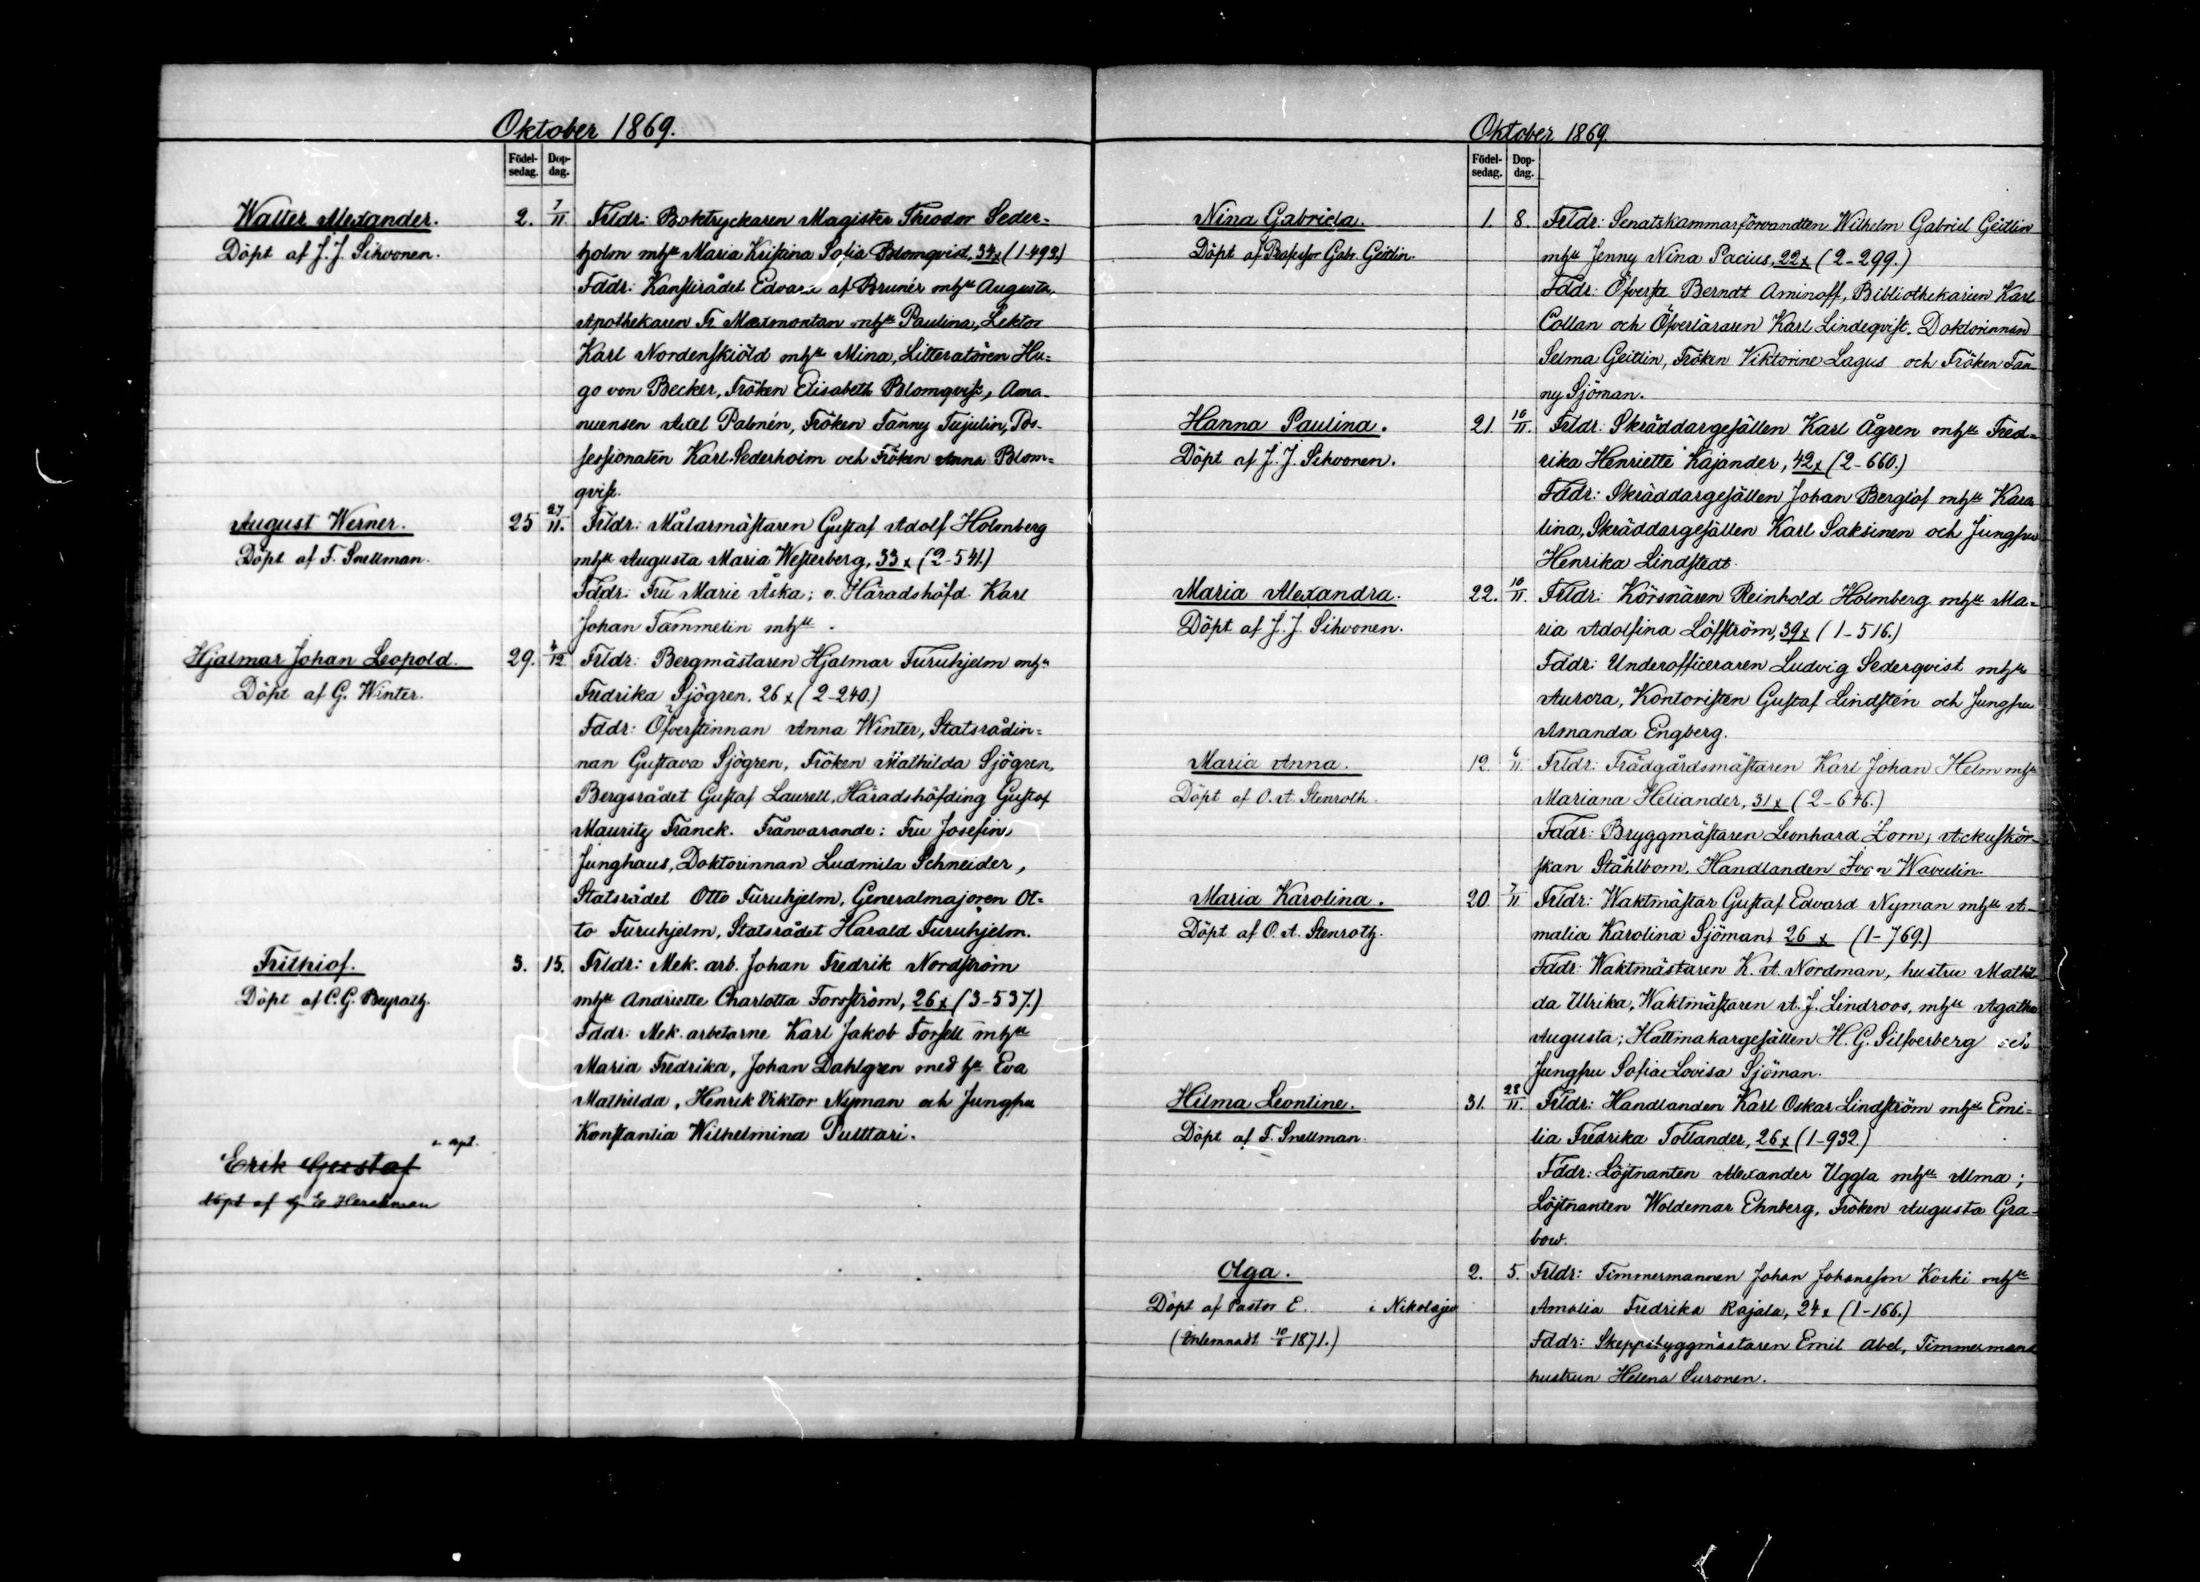 Oktober 1869.
Födel-
sedag.
Dop-
dag.
Walter Alexander.
Döpt af J. J. Sihvonen.
2. 7/11
Frldr: Boktryckaren Magister Theodor Seder=
holm mhu Maria Kristina Sofia Blomqvist, 34x (1-492)
Fddr: Kanslirådet Edvard af Brunér mhu Augusta,
Apothekaren Fr Maxmontan mhu Paulina, Lektor
Karl Nordenskiöld mhu Mina, Litteratören Hu=
go von Becker, Fröken Elisabeth Blomqvist, Ama-
nuensen Axel Palmén, Fröken Fanny Tujulin, Pos-
sessionaten Karl Sederholm och Fröken Anna Blom=
qvist.
August Werner.
Döpt af F. Snellman.
25 27/11.
Frldr: Målarmästaren Gustaf Adolf Holmberg
mhu Augusta Maria Westerberg, 33x (2-541.)
Fddr: Fru Marie Aska; v. Häradshöfd. Karl
Johan Tammelin mhu .
Hjalmar Johan Leopold.
Döpt af G. Winter.
29. 4/12
Frldr: Bergmästaren Hjalmar Furuhjelm mhu
Fredrika Sjögren, 26x (2-240.)
Fddr: Öfverstinnan Anna Winter, Statsrådin=
nan Gustava Sjögren, Fröken Mathilda Sjögren,
Bergsrådet Gustaf Laurell, Häradshöfding Gustaf
Mauritz Franck. Frånvarande: Fru Josefin
Junghaus, Doktorinnan Ludmila Schneider,
Statsrådet Otto Furuhjelm, Generalmajoren Ot=
to Furuhjelm, Statsrådet Harald Furuhjelm.
Frithiof.
Döpt af C. G. Beyrath.
3. 15.
Frldr: Mek. arb. Johan Fredrik Nordström
mhu Andriette Charlotta Forsström, 26x (3-537.)
Fddr: Mek. arbetarne Karl Jakob Forsell mhu
Maria Fredrika, Johan Dahlgren med hu Eva
Mathilda, Henrik Viktor Nyman och Jungfru
Konstantia Wilhelmina Pulttari.
Erik Gustaf
döpt af G E Hershman
Oktober 1869.
Födel-
sedag.
Dop-
dag.
Nina Gabriela.
Döpt af Professor Gabr. Geitlin.
1. 8.
Frldr: Senatskammarförvandten Wilhelm Gabriel Geitlin
mhu Jenny Nina Pacius, 22x (2-299.)
Fddr: Öfverste Berndt Aminoff, Bibliothekarien Karl
Collan och Öfverläraren Karl Lindeqvist. Doktorinnan
Selma Geitlin, Fröken Viktorine Lagus och Fröken Fan-
ny Sjöman.
Hanna Paulina.
Döpt af J. J. Sihvonen.
21. 10/11.
Frldr: Skräddargesällen Karl Ågren mhu Fred=
rika Henriette Kajander, 42x (2-660.)
Fddr: Skräddargesällen Johan Berglöf mhu Karo
lina, Skräddargesällen Karl Saksinen och Jungfru
Henrika Lindstedt.
Maria Alexandra.
Döpt af J. J. Sihvonen.
22. 10/11.
Frldr: Körsnären Reinhold Holmberg mhu Ma=
ria Adolfina Löfström, 39x (1-516.)
Fddr: Underofficeraren Ludvig Sederqvist mhu
Aurora, Kontoristen Gustaf Lindstén och Jungfru
Amanda Engberg.
Maria Anna.
Döpt af O. A. Stenroth.
12. 6/11.
Frldr: Trädgårdsmästaren Karl Johan Helm mhu
Mariana Heliander, 31x (2-646.)
Fddr: Bryggmästaren Leonhard Zorn; Ackuskör-
skan Ståhlbom, Handlanden Ivan Wavulin.
Maria Karolina.
Döpt af O. A. Stenroth.
20. 7/11
Frldr: Waktmästar Gustaf Edvard Nyman mhu A-
malia Karolina Sjöman, 26 x (1-769.)
Fddr: Waktmästaren K. A. Nordman, hustru Mathil
da Ulrika, Waktmästaren A. J. Lindroos, mhu Agatha
Augusta; Hattmakargesällen H. G. Silfverberg och
Jungfru Sofia Lovisa Sjöman.
Hilma Leontine.
Döpt af F. Snellman.
31. 28/11.
Frldr: Handlanden Karl Oskar Lindström mhu Emi=
lia Fredrika Tollander, 26x (1-932.)
Fddr: Löjtnanten Alexander Uggla mhu Alma;
Löjtnanten Woldemar Ehnberg, Fröken Augusta Gra-
bow.
Olga.
Döpt af Pastor E. i Nikolajev
(Inlemnadt 10/1 1871.)
2. 5.
Frldr: Timmermannen Johan Johansson Koski mhu
Amalia Fredrika Rajala, 24x (1-166.)
Fddr: Skeppsbyggmästaren Emil Abel, Timmermans
hustrun Helena Suronen.